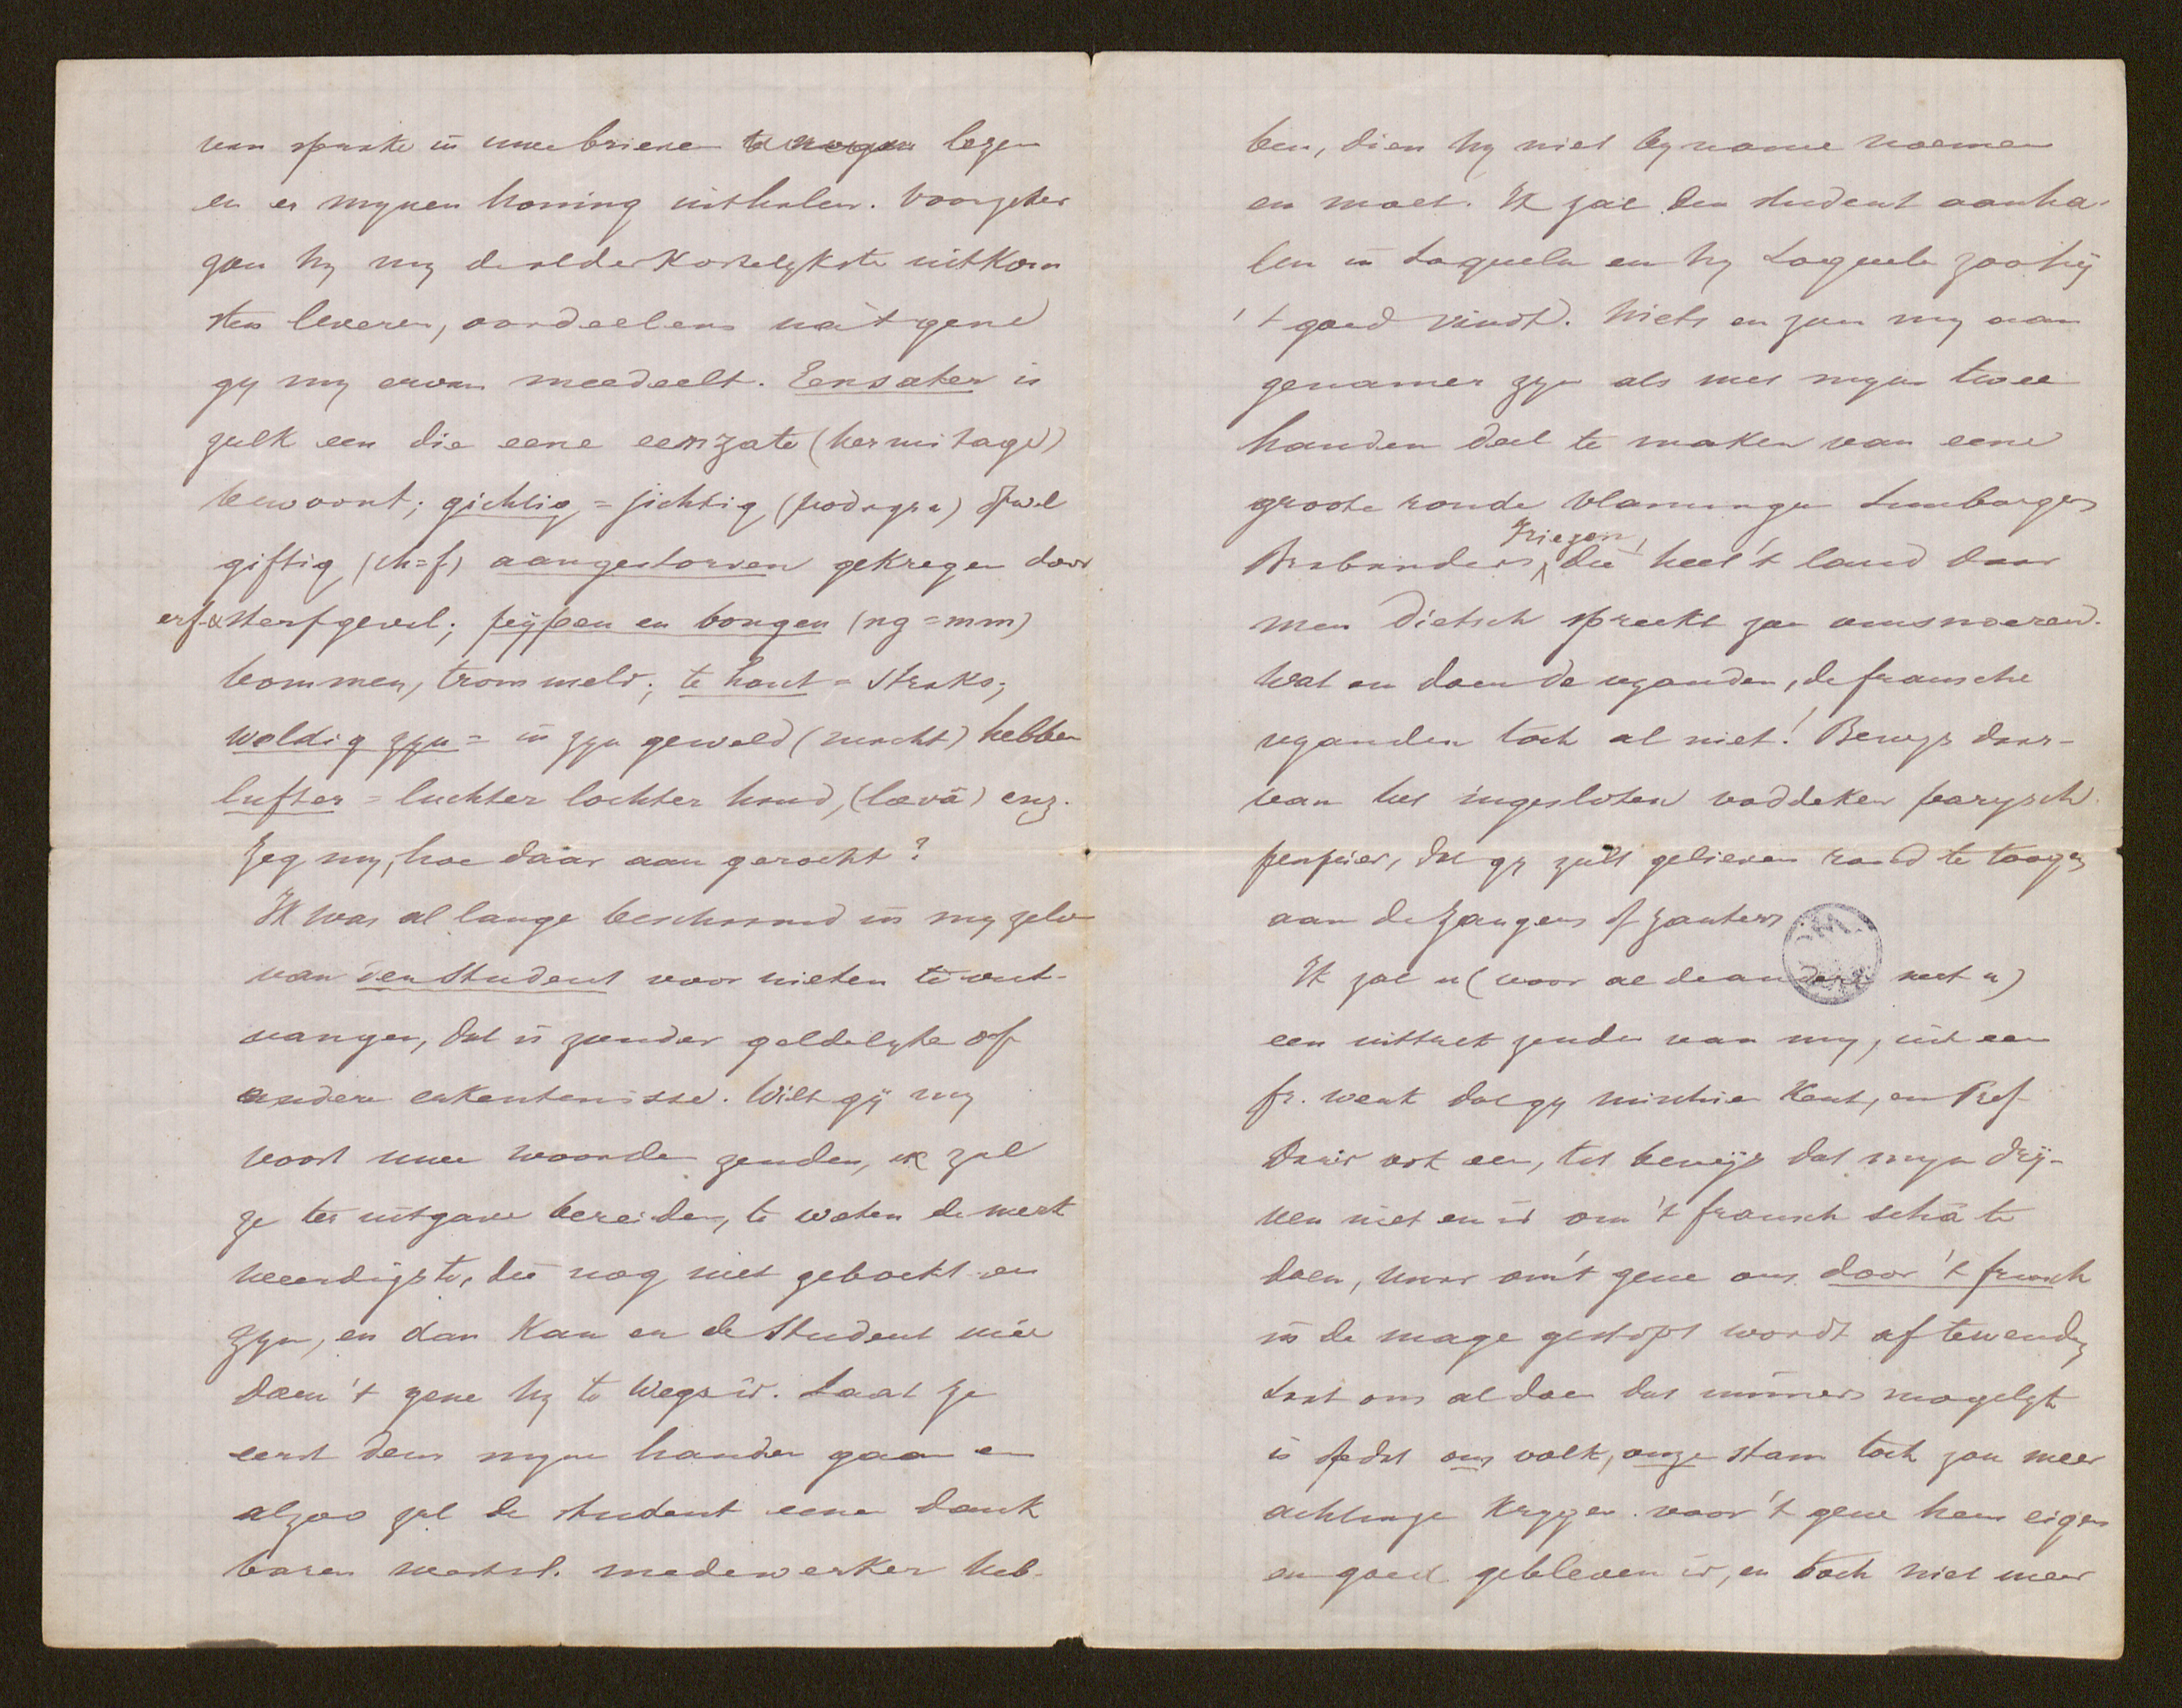 van sprake in uwe brieven te mogen lezen
en er mynen honing uithalen. Voorzeker
zou hy my de alderkostelykste uitkom
sten leveren, oordeelens nà 't gene
gy my ervan meedeelt. Eensater is
zulk een die eene eenzate (hermitage)
bewoont; gichtig = jichtig (podagra) ofwel
giftig (ch=f) aangestorven gekregen door
erf- & sterfgeval; pijpen en bongen (ng = mm)
bommen, trommels; te hout = straks;
weldig zyn = in zyn geweld (macht) hebben
lufter = luchter lochter hand, (laevâ) enz.
Zeg my, hoe daar aan gerocht?
Ik was al lange beschaamd in my zelv
van den Student voor nieten te ont-
vangen, dat is zonder geldelyke of
andere erkentenisse. Wilt gij my
voort uwe woorden zenden, ik zal
ze ter uitgave bereiden, te weten de merk
weerdigste, die nog niet geboekt en
zyn, en dan kan er de Student mêe
doen 't gene hy te wege is. Laat ze
eerst deur myne handen gaan en
alzoo zal de student eenen dank
baren medewerker heb-
ben, dien hy niet by name noemen
en moet. Ik zal den student aanha-
len in Loquela en hy Loquela zoo hij
't goed vindt. Niets en zou my aan
genamer zyn als met myne twee
handen deel te maken van eene
groote ronde Vlamingen Limburgers
Brabanders, Friezen, die heel 't land daar
men dietsch spreekt zou omsnoeren.
Wat en doen de vyanden, de fransche
vyanden toch al niet! Bewys daar-
van het ingesloten voddeken parysch
penpier, dat gy zult gelieven rond te toogen
aan de zangers of zanters.
Ik zal u (voor al de andere met u)
een uittrek zenden van my, uit een
fr. werk dat gy misschien kent, en Prof
David ook een, tot bewijs dat myn drij-
ven niet en is om 't fransch schâ te
doen, maar om 't gene ons door 't fransch
in de mage gestopt wordt af te wenden
Laat ons al doen dat immers mogelyk
is opdat ons volk, onze stam toch zou meer
achtinge krygen voor 't gene hem eigen
en goed gebleven is, en toch niet meer